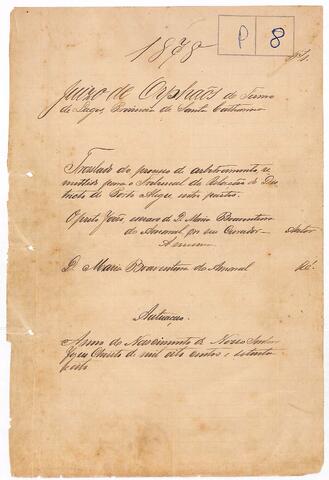 P 8
1878
Juizo de Orphaõs do Termo
de Lages, Provincia de Santa Catharina
Traslado do processo de arbitramento re
mettido para o Tribunal da Relação do Des
tricto de Porto Alegre entre partes.
O preto João, escravo de D. Maria Boaventura
do Amaral por seu Curador Autor
D. Maria Boaventura do Amaral Ré.
Autuação.
Anno do Nascimento de Nosso Senhor
Jesus Christo de mil oito centos e setenta